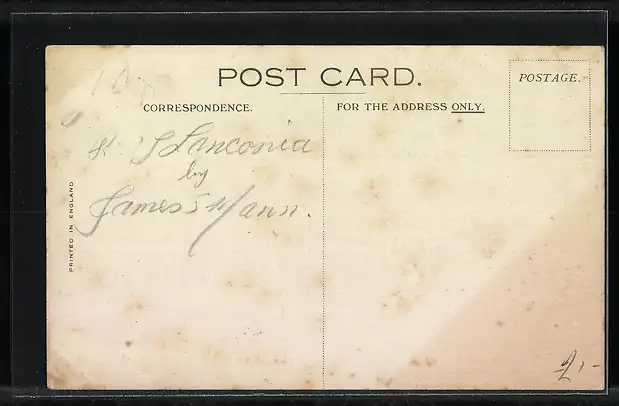 POST CARD.
CORRESPONDENCE.
FOR THE ADDRESS ONLY.
POSTAGE.
Lanconia
by
James Mann.
PRINTED IN ENGLAND